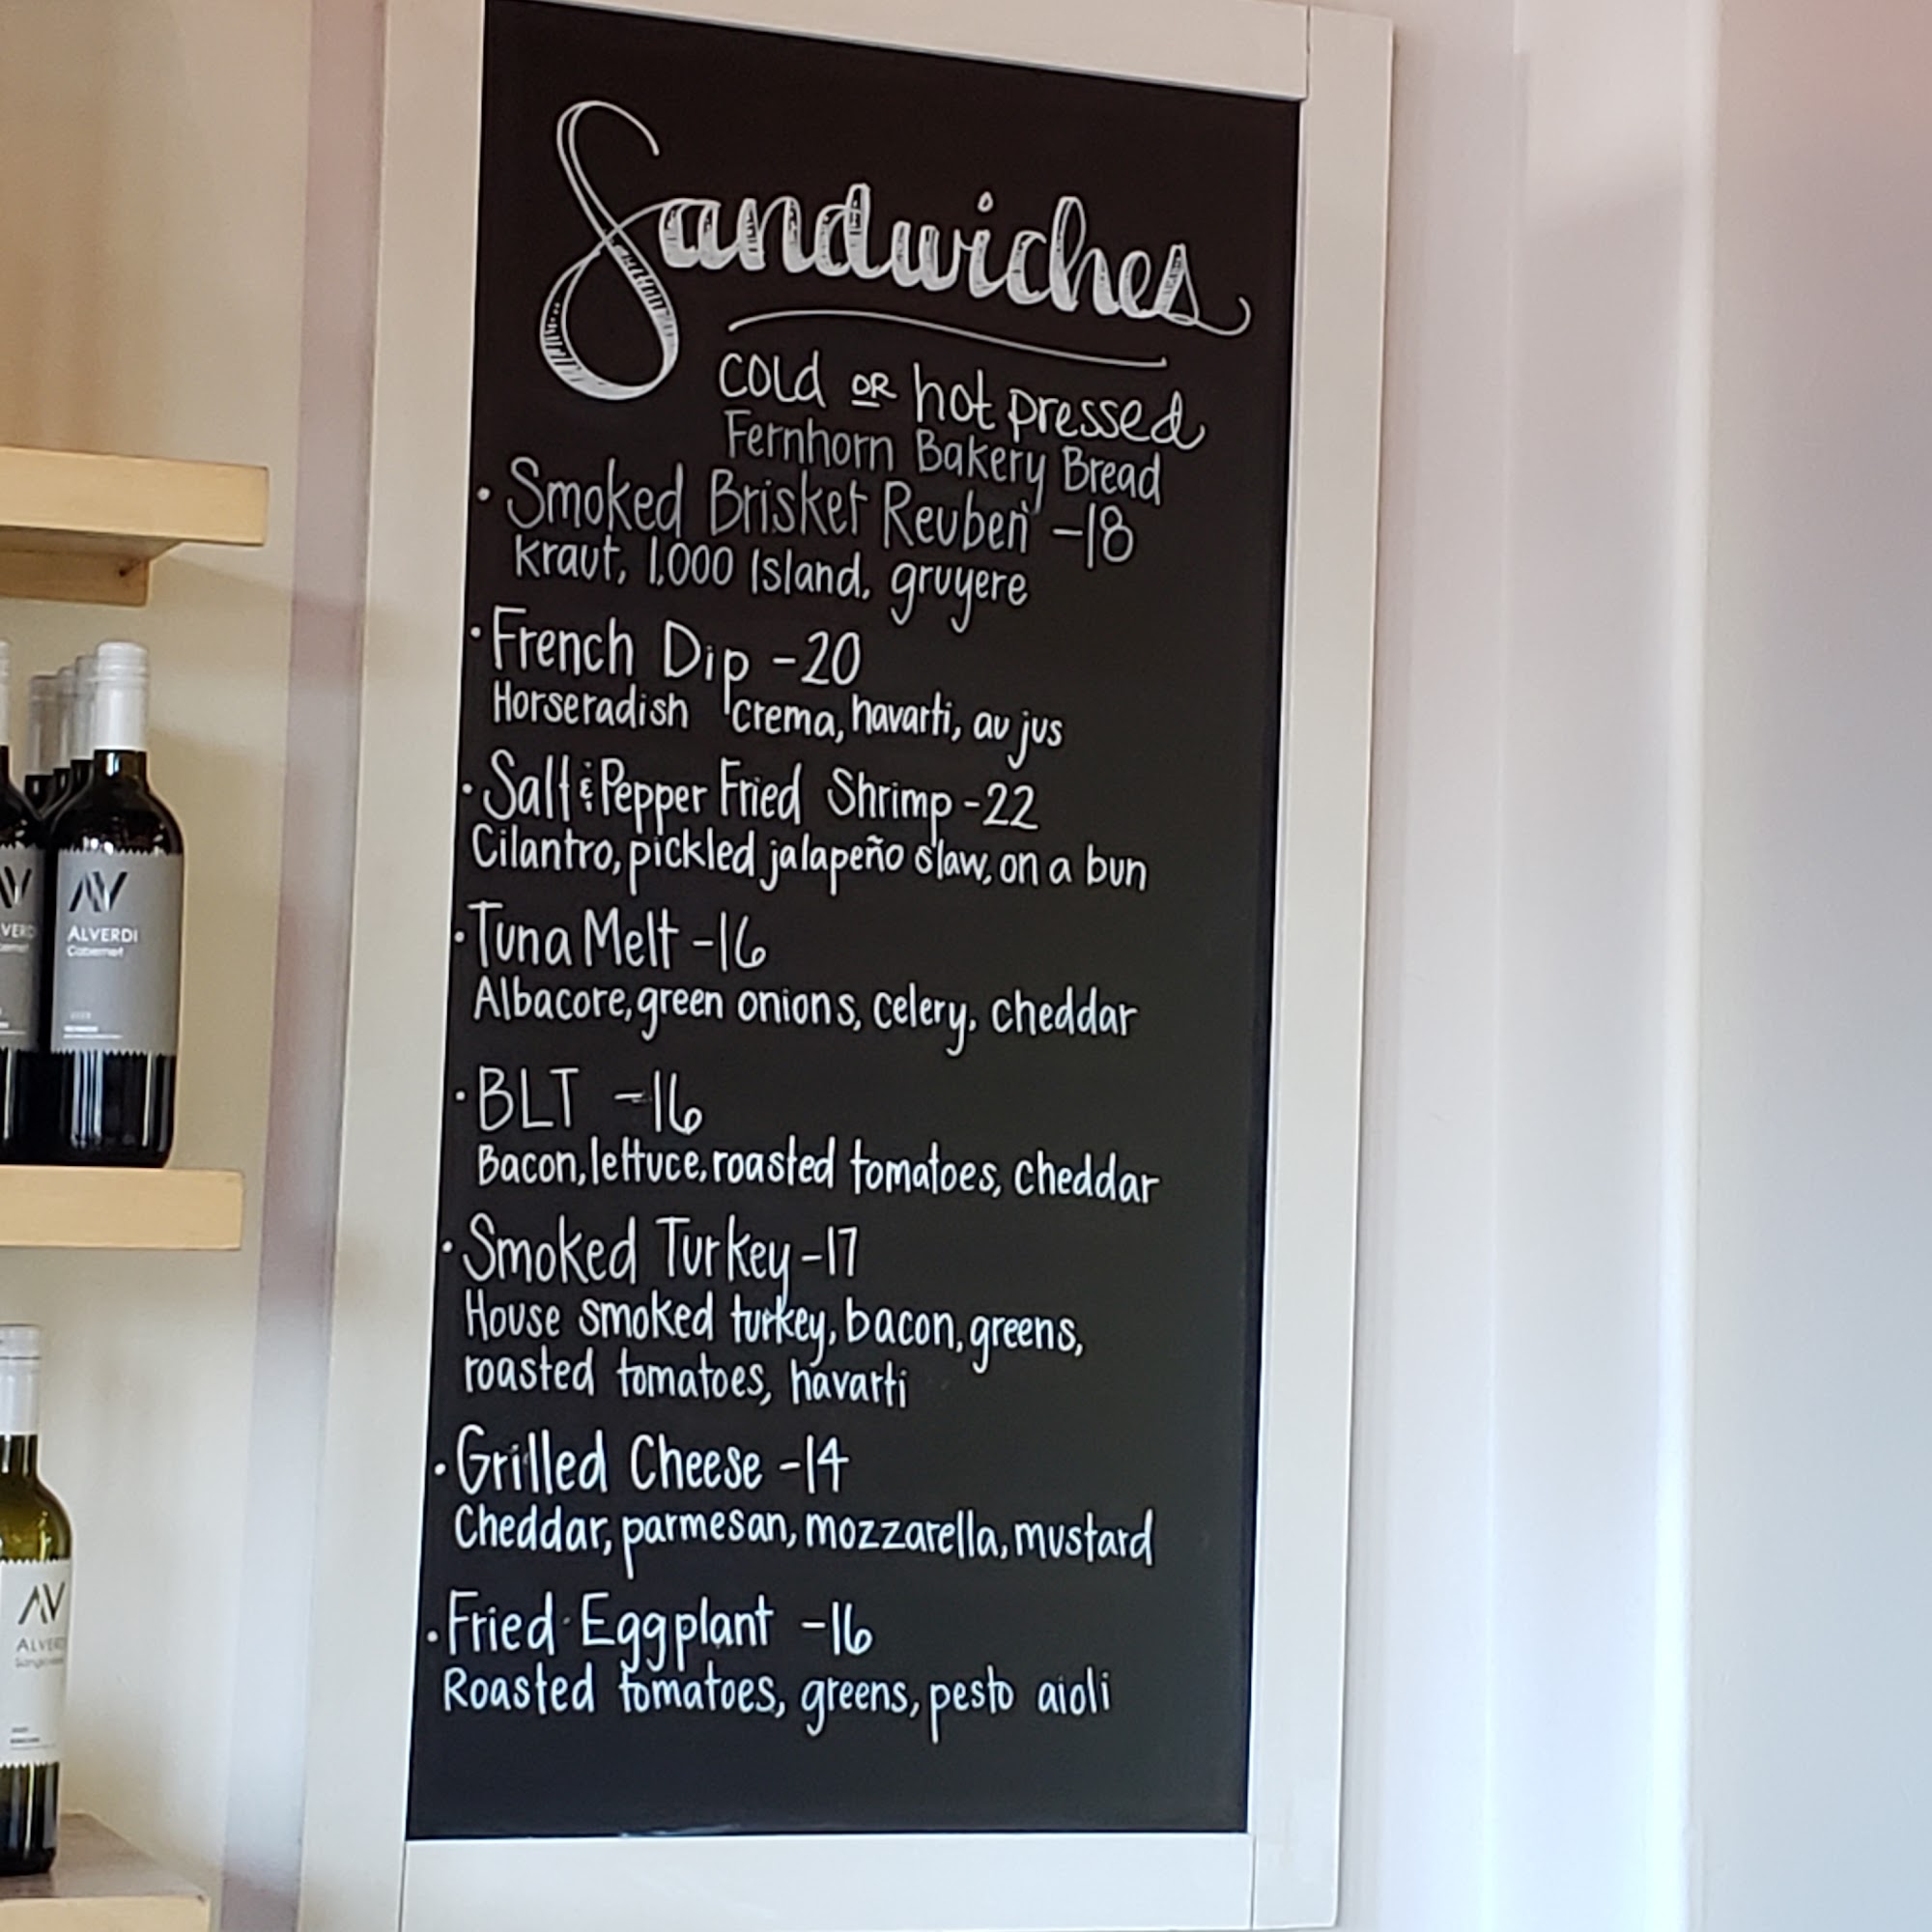 Sandwiches
cold OR hot pressed
Fernhorn Bakery Bread
• Smoked Brisket Reuben -18
kraut, 1,000 Island, gruyere
• French Dip -20
Horseradish crema, havarti, au jus
• Salt & Pepper Fried Shrimp -22
Cilantro, pickled jalapeño slaw, on a bun
• Tuna Melt -16
Albacore, green onions, celery, cheddar
• BLT -16
Bacon, lettuce, roasted tomatoes, cheddar
• Smoked Turkey -17
House smoked turkey, bacon, greens,
roasted tomatoes, havarti
• Grilled Cheese -14
Cheddar, parmesan, mozzarella, mustard
• Fried Eggplant -16
Roasted tomatoes, greens, pesto aioli
AV
ALVERDI
Cabernet
AV